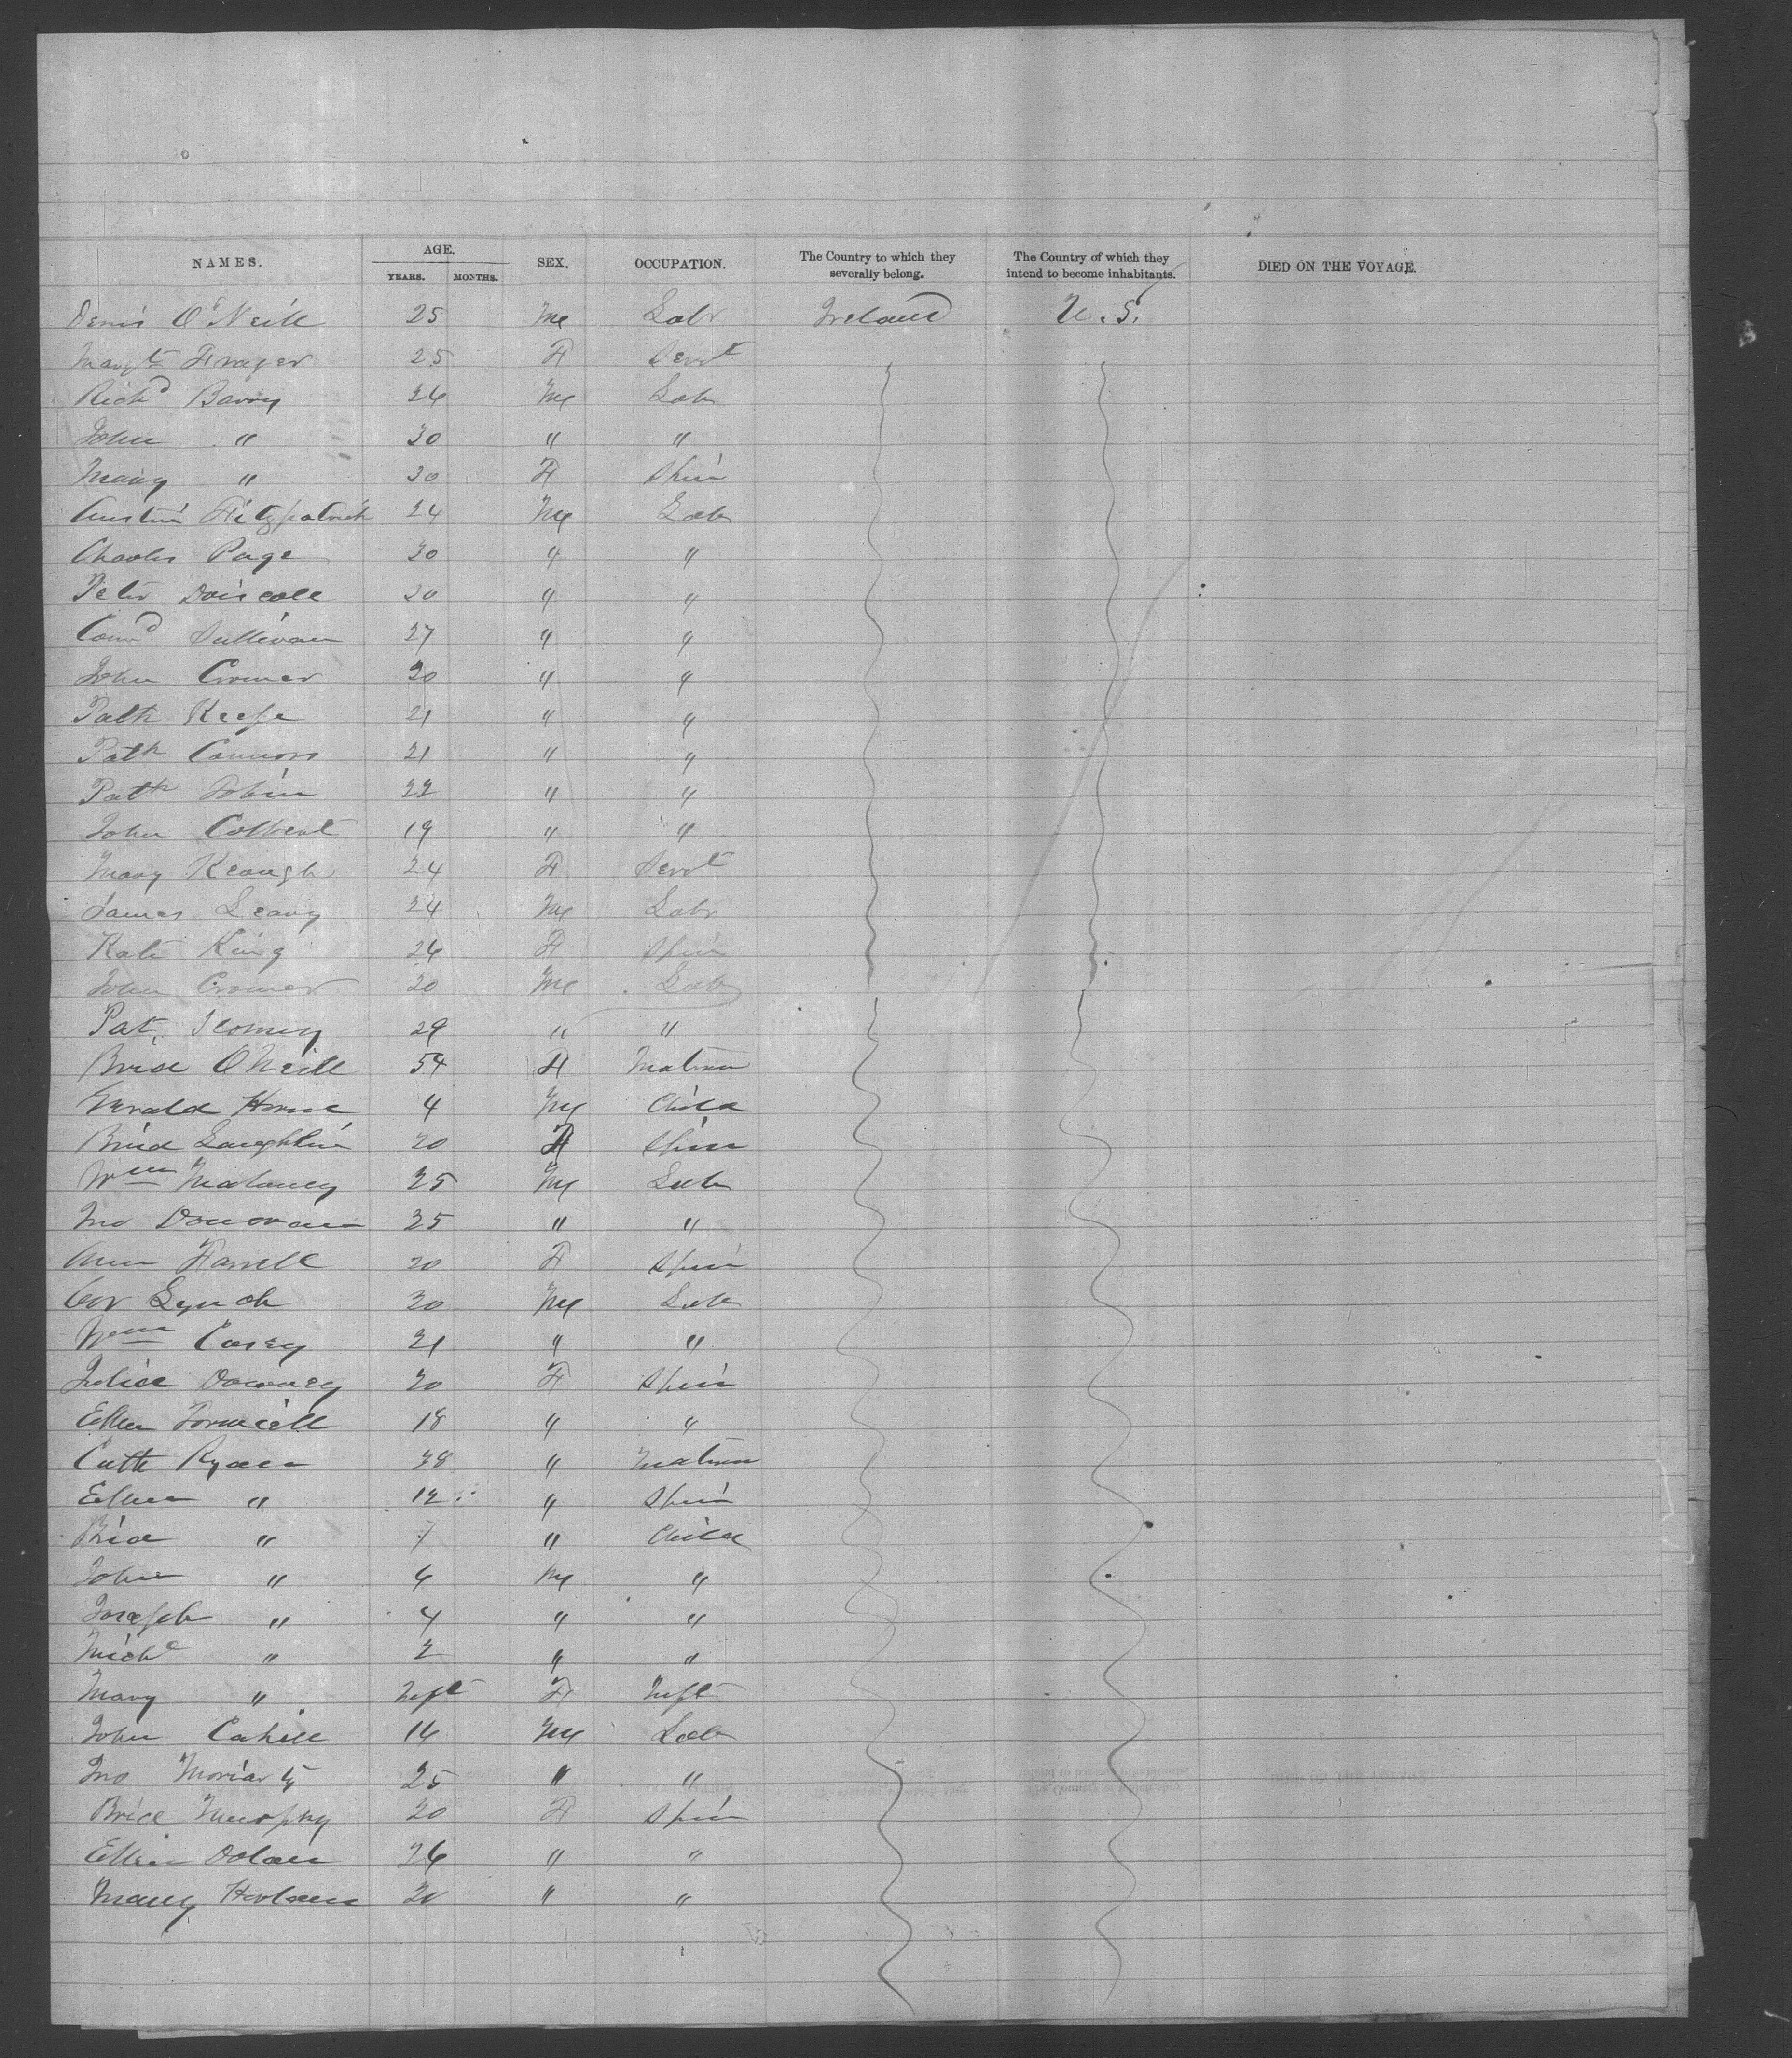 NAMES. AGE. YEARS. MONTHS. SEX. OCCUPATION. The Country to which they severally belong. The Country of which they intend to become inhabitants. DIED ON THE VOYAGE.
Denis O'Neill 25 M Labr Ireland U.S.
Margt Frazer 25 F Servt
Richd Barry 26 M Lab
John " 20 " "
Mary " 20 F Spin
Austin Fitzpatrick 24 M Lab
Charles Page 30 " "
Peter Driscoll 20 " "
Cornd Sullivan 27 " "
John Cromer 20 " "
Patk Keefe 21 " "
Patk Connors 21 " "
Patk Tobin 22 " "
John Colbert 19 " "
Mary Keough 24 F Servt
James Leary 24 M Labr
Kate King 26 F Spin
John Cromer 20 M Lab
Pat 29 " "
Brid O'Neill 54 F Matron
Gerald Horne 4 M Child
Brid Laughlin 20 F Spin
Wm Maloney 25 M Lab
Jno Donovan 25 " "
Ann Farrell 20 F Spin
Cor Lynch 30 M Lab
Wm Casey 21 " "
Julia Downey 20 F Spin
Ellen 18 " "
Cath Ryan 38 " Matron
Ellen " 12 " Spin
Brid " 7 " Child
John " 6 M "
Joseph " 4 " "
Michl " 2 " "
Mary " Inft F Inft
John Cahill 16 M Lab
Jno Moriarty 25 " "
Brid Murphy 20 F Spin
Ellen Dolan 26 " "
Mary Horlane 20 " "